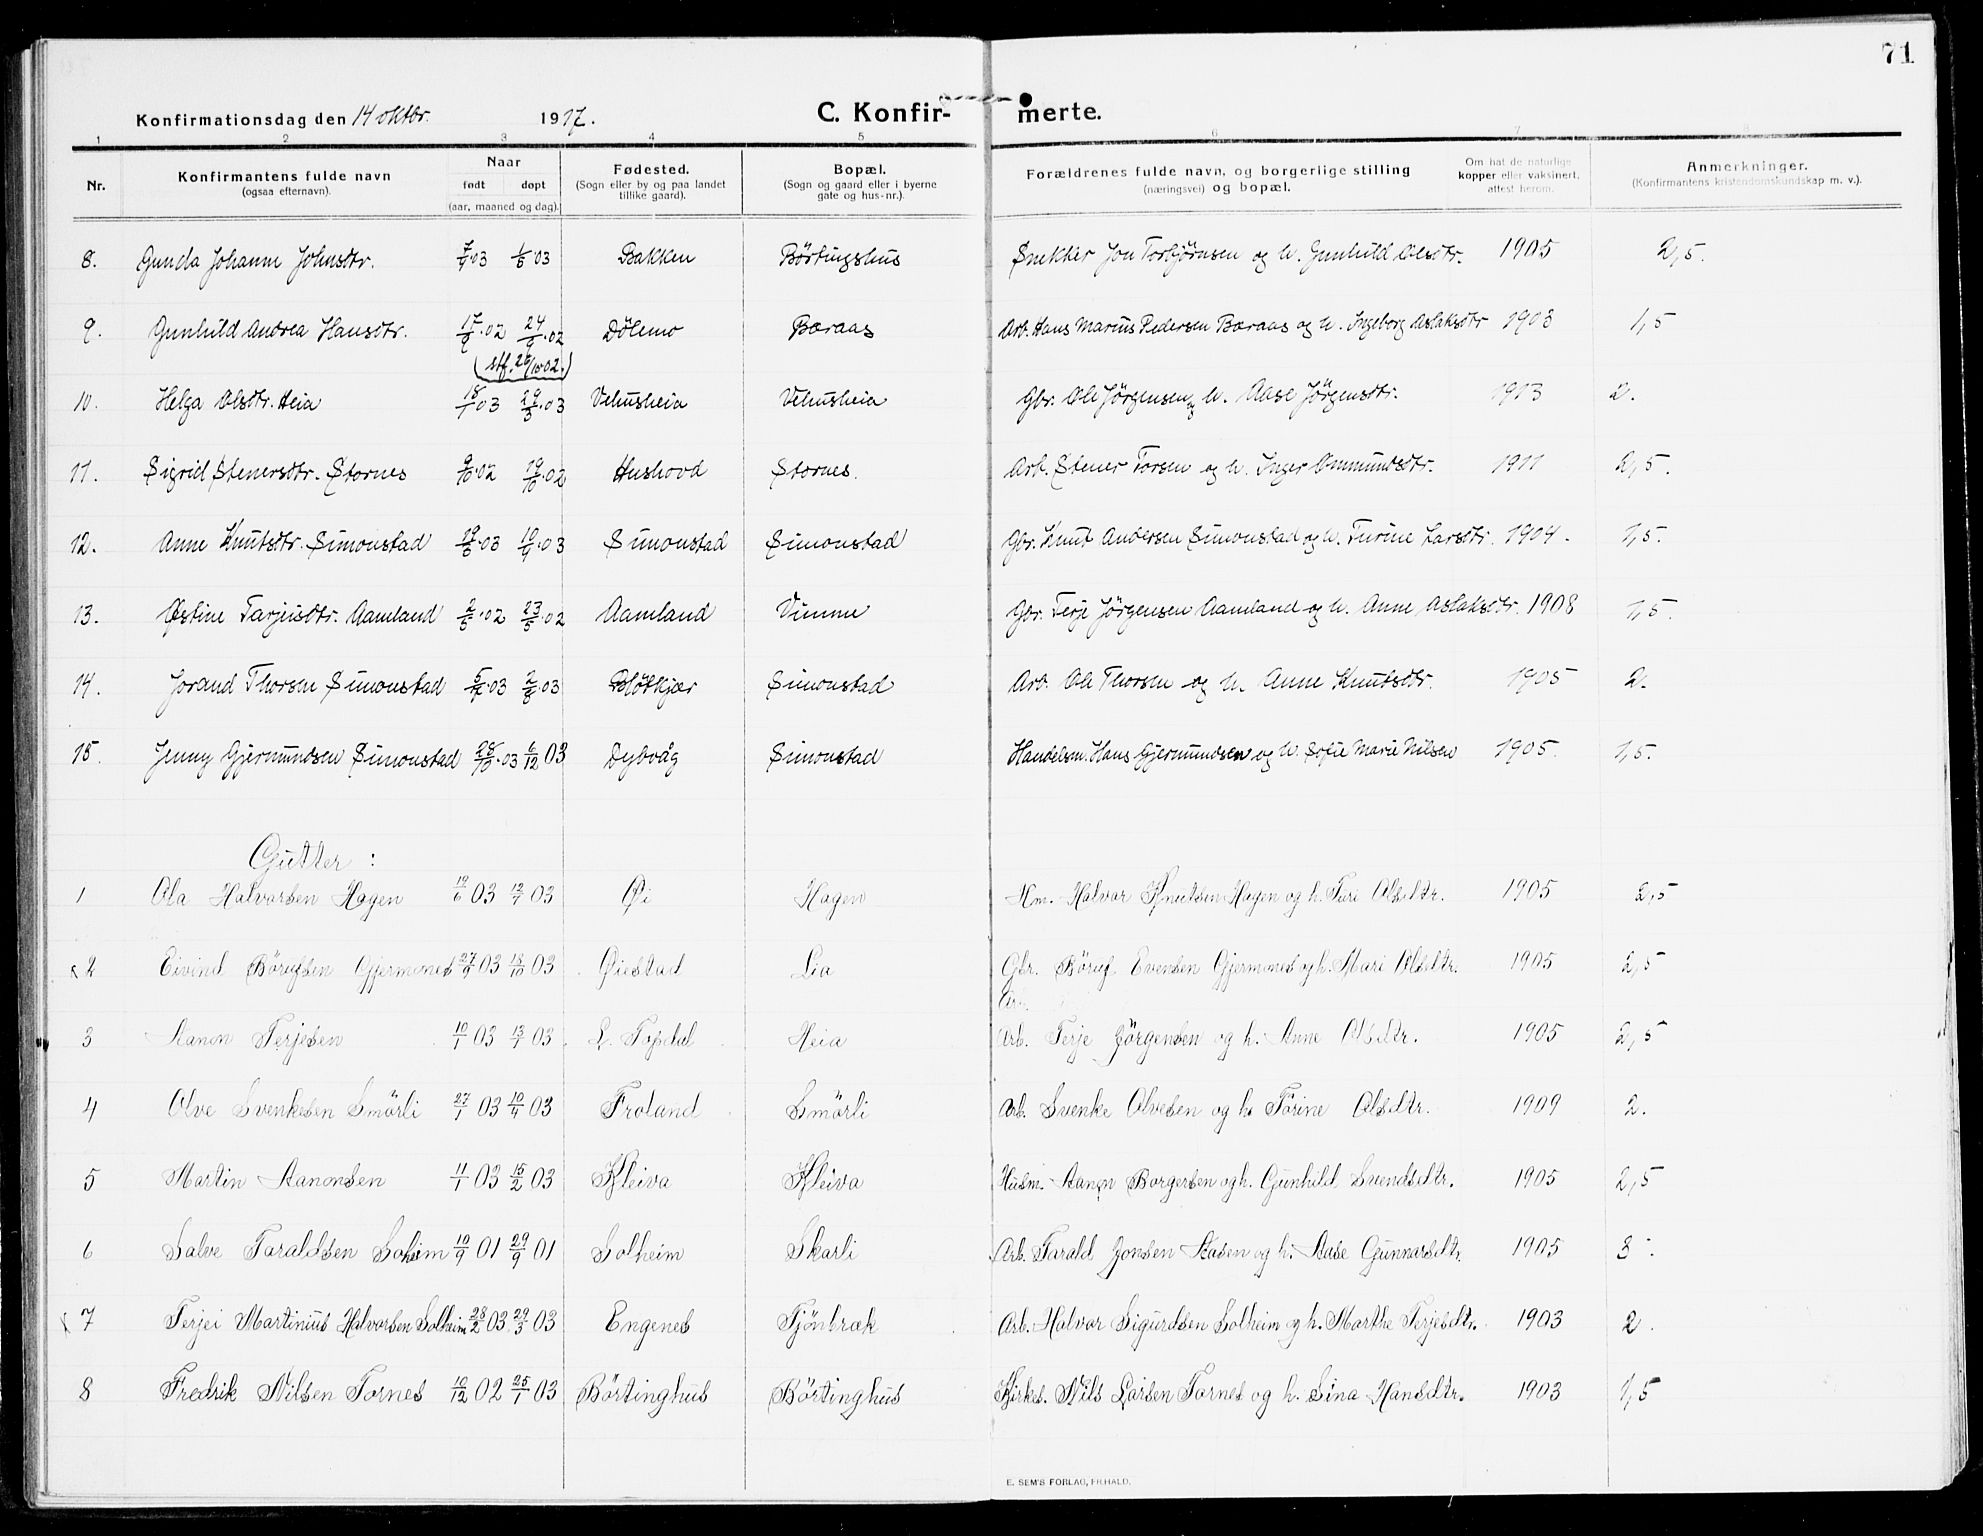 71
Konfirmationsdag den 14 oktbr. 1917. C. Konfir- merte.
1 2 3 4 5 6 7 8
Nr. Konfirmantens fulde navn (ogsaa efternavn). Naar født døpt (aar, maaned og dag). Fødested. (Sogn eller by og paa landet tillike gaard). Bopæl. (Sogn og gaard eller i byerne gate og hus-nr.). Forældrenes fulde navn, og borgerlige stilling (næringsvei) og bopæl. Om hat de naturlige kopper eller vaksinert, attest herom. Anmerkninger. (Konfirmantens kristendomskundskap m. v.).
8. Gunda Johanne Johnsdtr. 03 03 Bakken Børtingshus Snekker Jon Torbjørnsen og h. Gunhild Olsdtr. 1905 2,5.
9. Gunhild Andrea Hansdtr. 17/9.02 24/9.02 Dølemo Baraas Arb. Hans Marius Pedersen Baraas og h. Ingeborg Aslaksdtr 1903 1,5
(stf. 26/10 02.)
10. Helga Olsdtr. Heia 18/1 03 29/3.03 Vehusheia Vehusheia Gbr. Ole Jørgensen og h. Aase Jørgensdtr. 1913 2.
11. Sigrid Stenersdtr. Stornes 9/10.02 19/10.02 Hushovd Stornes. Arb. Stener Torsen og h. Inger Ommundsdtr. 1911 2,5.
12. Anne Knutsdtr. Simonstad 03 03 Simonstad Simonstad Gbr. Knut Andersen Simonstad og h. Turine Larsdtr. 1904. 1,5.
13. Østine Tarjeisdtr. Aamland 2/5.02 23/5.02 Aamland Vimme Gbr. Terje Jørgensen Aamland og h. Anne Aslaksdtr. 1908 1,5.
14. Jorand Thorsen Simonstad 03 03 Bløtkjær Simonstad Arb. Ole Thorsen og h. Anne Knutsdtr. 1905 2.
15. Jenny Gjermundsen Simonstad 28/10.03 6/12 03 Dybvåg Simonstad Handelsm. Hans Gjermundsen og h. Sofie Marie Nilsen 1905. 1,5.
Gutter :
1 Ola Halvorsen Hagen 19/6 03 12/7 03 Øi Hagen Hm. Halvor Knutsen Hagen og h. Turi Olsdtr. 1905 2,5
2 Eivind Børufsen Gjermones 27/9 03 18/10 03 Øiestad Lia Gbr. Børuf Evensen Gjermones og h. Mari Olsdtr. 1905 2,5
3 Aanon Terjesen 10/1 03 13/7 03 L. Topdal Heia Arb. Terje Jörgensen og h. Anne Olsdtr. 1905 2,5
4 Olve Svenkesen Smörli 27/1 03 10/4 03 Froland Smörli Arb. Svenke Olvesen og h. Torine Olsdtr. 1909 2.
5 Martin Aanonsen 11/1 03 15/2 03 Kleiva Kleiva Husm. Aanon Borgersen og h. Gunhild Svendsdtr. 1905 2,5
6 Salve Taraldsen Solheim 10/9 01 29/9 01 Solheim Skarli Arb. Tarald Jonsen Aasen og h. Aase Gunnarsdtr. 1905 3
7 Terjei Martinius Halvorsen Solheim 28/2 03 29/3 03 Engenes Tjönbræk Arb. Halvor Sigurdsen Solheim og h. Marthe Terjesdtr. 1903 2
8 Fredrik Nilsen Tornes 10/12 02 25/1 03 Börtinghus Börtinghus Kirkes. Nils Larsen Tornes og h. Sina Hansdtr. 1903 1,5
E. SEM'S FORLAG, FR.HALD.